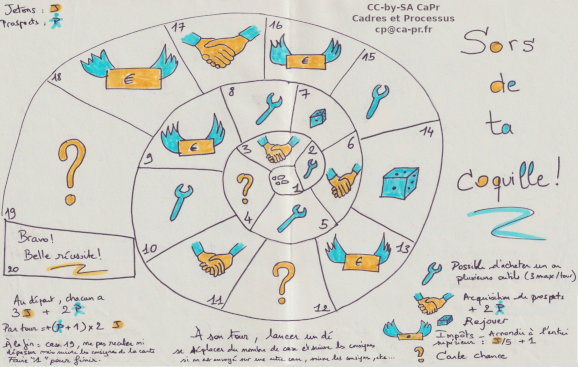 Jetons : J
Prospects : P
CC-by-SA CaPr
Cadres et Processus
cp@ca-pr.fr
Sors
de
ta
coquille !
1
2
3
4
5
6
7
8
9
10
11
12
13
14
15
16
17
18
19
20
€
€
€
€
Bravo !
Belle réussite !
Au départ, chacun a
3 J + 2 P
Par tour : + (P + 1) × 2 J
À la fin : case 19, ne pas reculer ni
dépasser mais suivre les consignes de la carte
Faire "1" pour finir.
A son tour, lancer un dé
se déplacer du nombre de case et suivre les consignes
si on est envoyé sur une autre case, suivre les consignes, etc...
Possible d'acheter un ou
plusieurs outils (3 maxe/tour)
Acquisition de prospects
+ 2 P
Rejouer
€
Impôts - Arrondis à l'entier
supérieur : J/5 + 1
Carte chance